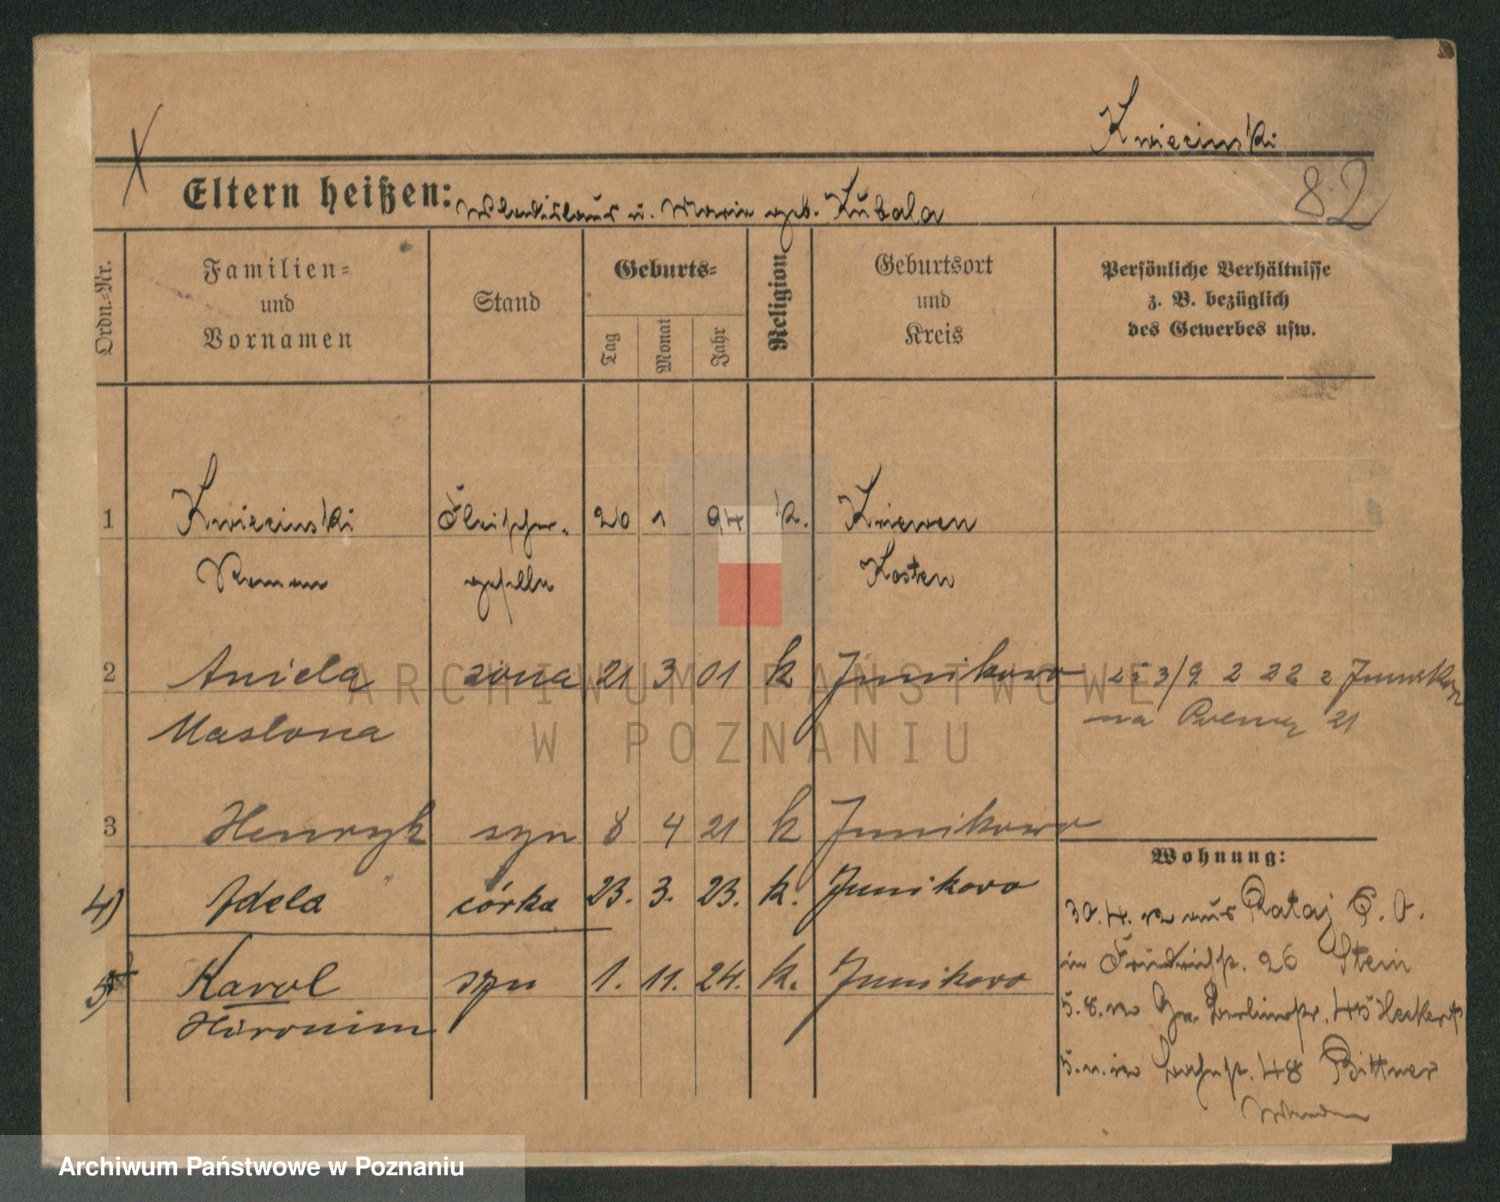 Kwiecinski
82
Eltern heißen: Wladislaus u. Marie geb. Kubala
Ordn.-Nr.
Familien-
und
Vornamen
Stand
Geburts-
Tag
Monat
Jahr
Religion
Geburtsort
und
Kreis
Persönliche Verhältnisse
z. B. bezüglich
des Gewerbes usw.
1 Kwiecinski Fleischer- 20 1 94 k. Kriewen
Roman geselle Kosten
2 Aniela żona 21 3 01 k Junikowo 25 3/9 2 22 z Junikowa
Maslona na 21
3 Henryk syn 8 4 21 k Junikowo
4) Adela córka 23. 3. 23. k. Junikowo
5 Karol syn 1. 11. 24. k. Junikowo
Hieronim
Wohnung:
30.4. aus Rataj
in 26 Stein
5.8. Gr. Berlinerstr. 45
48 Bittner
ARCHIWUM PAŃSTWOWE
W POZNANIU
Archiwum Państwowe w Poznaniu